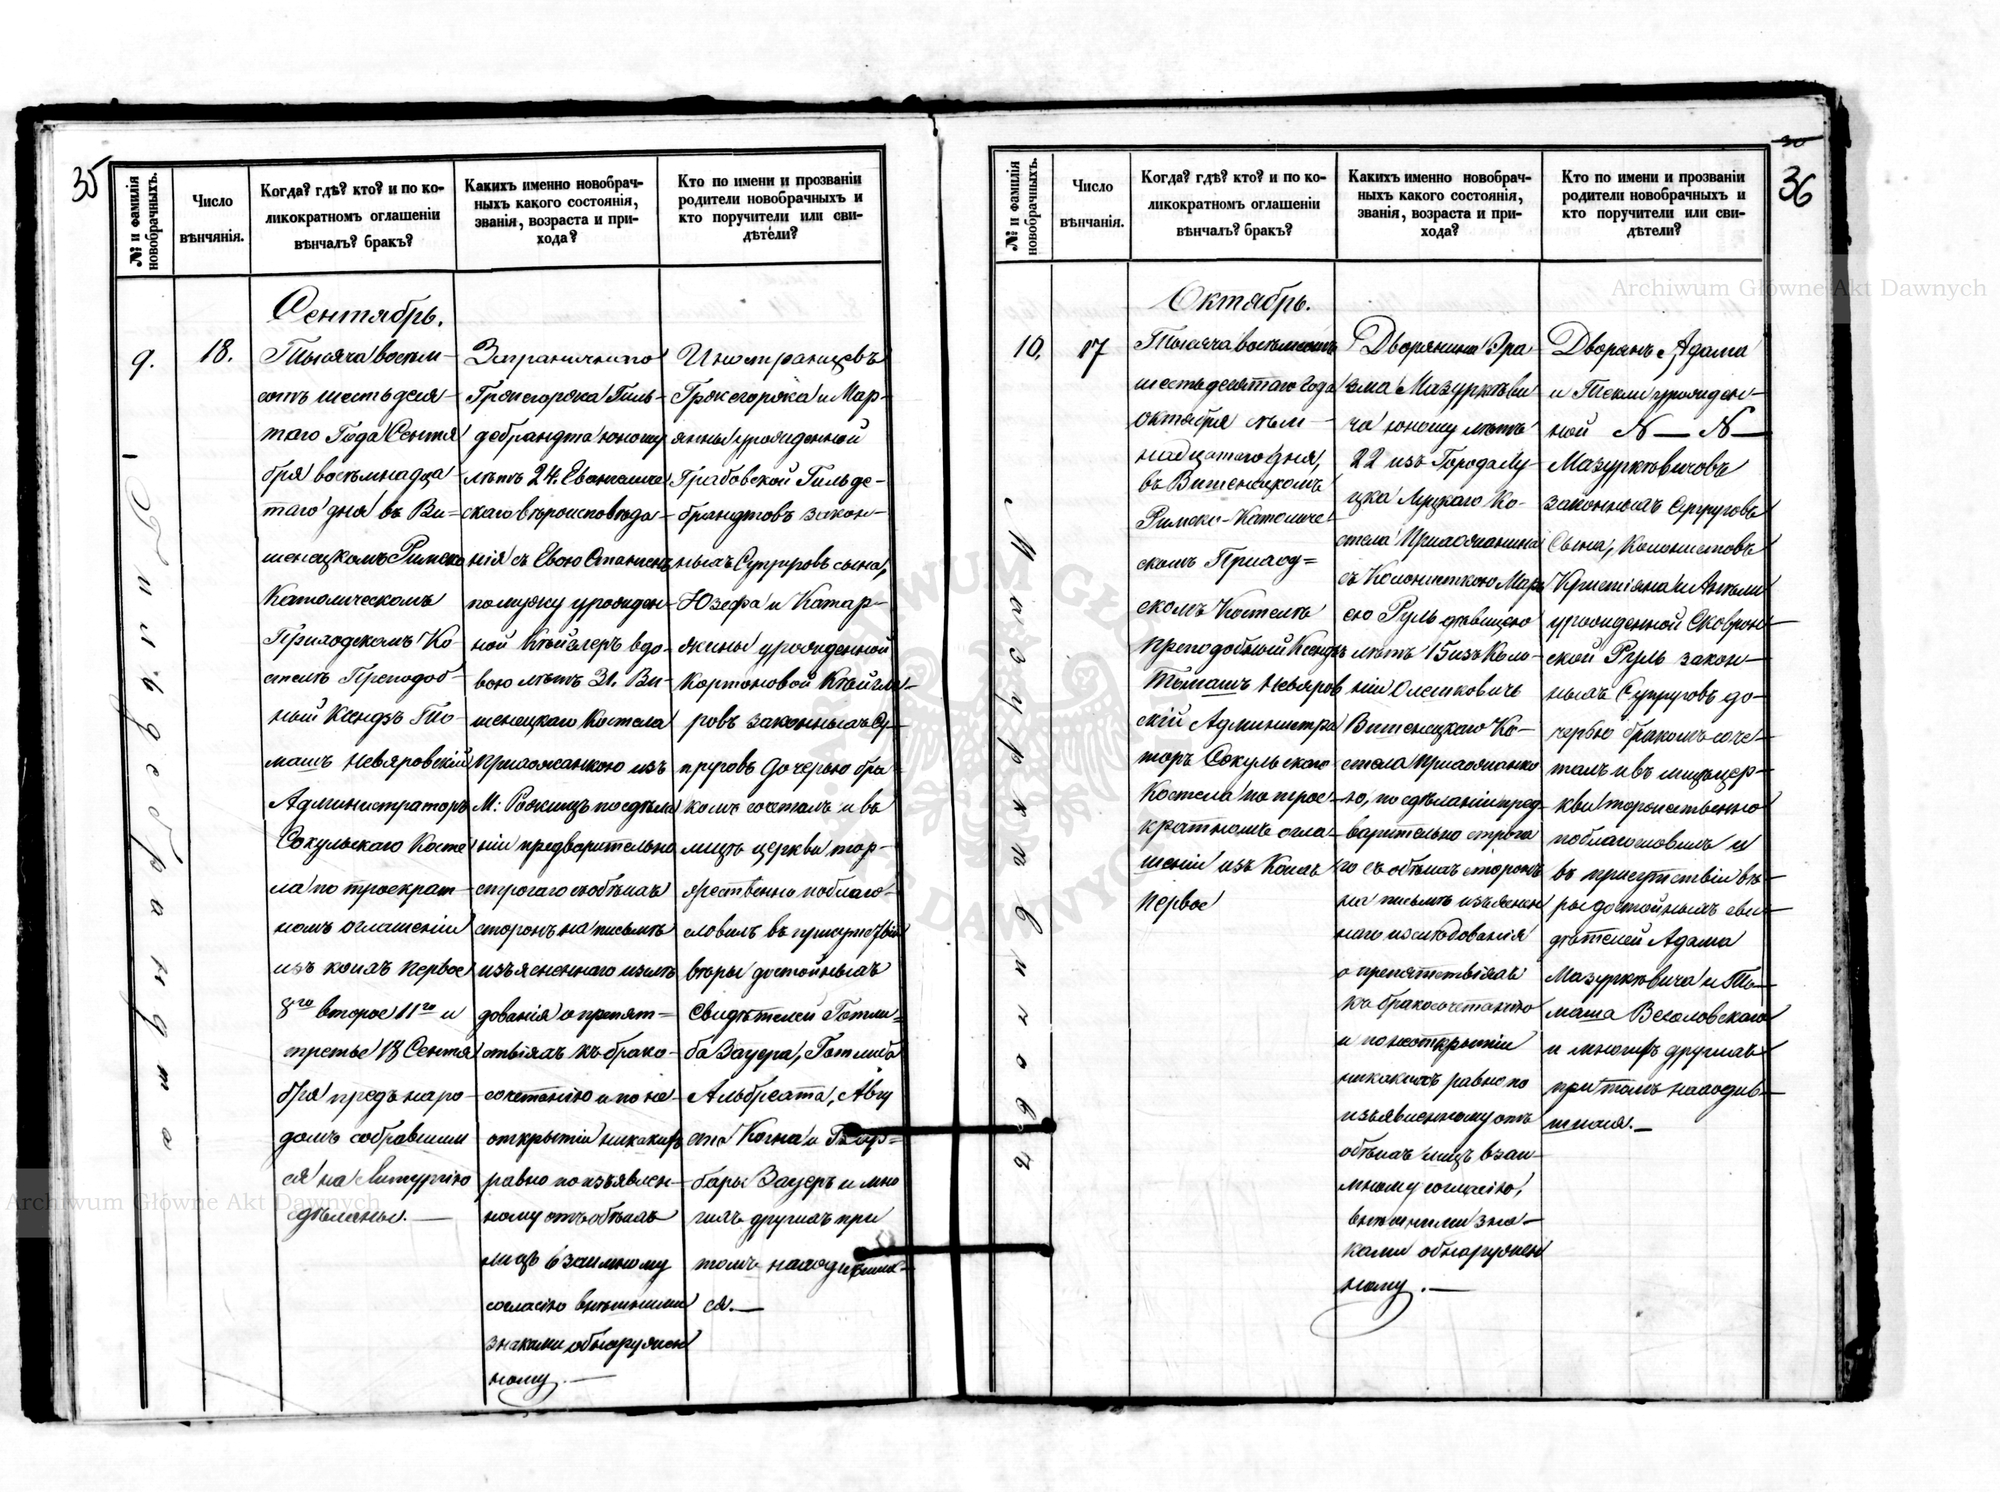 35
№ и фамилія новобрачныхъ.
Число вѣнчянія.
Когда? гдѣ? кто? и по ко-
ликократномъ оглашеніи
вѣнчалъ? бракъ?
Какихъ именно новобрач-
ныхъ какого состоянія,
званія, возраста и при-
хода?
Кто по имени и прозваніи
родители новобрачныхъ и
кто поручители или сви-
дѣтели?
9.
Гильдебрандта
18.
Сентябрь.
Тысяча восем
сотъ шестьдеся
таго Года Сентя
бря восемнадца
таго дня въ Ви-
шенецкомъ Римско
Католическомъ
Приходскомъ Ко-
стелѣ Преподоб-
ный Ксендзъ То-
машъ Невяровскій
Администраторъ
Сокульскаго Косте
ла по троекрат-
номъ оглашеніи
изъ коихъ первое
8го второе 11го и
третье 18 Сентя
бря предъ наро-
домъ собравшим
ся на Литургію
сдѣланы.—
Заграничнаго
Гильдебрандта юношу
лѣтъ 24. Евангеличе
скаго вѣроисповѣда-
нія съ Евою
по мужу урожден-
ной вдо-
вою лѣтъ 31. Ви-
шенецкаго Костела
Прихожанкою изъ
М: Рожищъ по сдѣла
ніи предварительно
строгаго съ обѣихъ
сторонъ на письмѣ
изъясненнаго изслѣ
дованія о препят-
ствіяхъ къ брако-
сочетанію и по не-
открытіи никакихъ
равно по изъявлен-
ному отъ обѣихъ
лицъ взаимному
согласію внѣшними
знаками обнаружен
ному.—
Иностранцевъ
и Мар-
янны урожденной
Грабовской Гильде-
брандтовъ закон-
ныхъ Супруговъ сына,
Юзефа и Катар-
жины урожденной
ровъ законныхъ Су-
пруговъ дочерью бра
комъ сочеталъ и въ
лицѣ церкви тор-
жественно поблаго-
словилъ въ присутствіи
вѣры достойныхъ
Свидѣтелей Готли-
ба Зауера, Готлиба
Альбрехта, Авгу
ста Когна и Бар-
бары Зауеръ и мно
гихъ другихъ при
томъ находивших-
ся.—
36
№ и фамилія новобрачныхъ.
Число вѣнчанія.
Когда? гдѣ? кто? и по ко-
ликократномъ оглашеніи
вѣнчалъ? бракъ?
Какихъ именно новобрач-
ныхъ какого состоянія,
званія, возраста и при-
хода?
Кто по имени и прозваніи
родители новобрачныхъ и
кто поручители или сви-
дѣтели?
10.
17
Октябрь.
Тысяча восемьсотъ
шестьдесятаго Года
октября семь-
надцатого дня,
въ Вишенецкомъ
Римско-Католиче-
скомъ Приход=
скомъ Костелѣ
Преподобный Ксендзъ
Томашъ Невяров
скій Администра
торъ Сокульскаго
Костела по трое-
кратномъ огла-
шеніи изъ коихъ
первое
Дворянина Эра
зма Мазуркеви
ча юношу лѣтъ
22 изъ Города Лу-
цка Луцкаго Ко-
стела Прихожанина
съ Колонисткою Мари
ею Руль дѣвицею
лѣтъ 15 изъ Коло-
ніи Олешковичъ
Вишенецкаго Ко-
стела Прихожанко
ю, по сдѣланіи пред
варительно строга
го съ обѣихъ сторонъ
на письмѣ изъяснен
наго изслѣдованія
о препятствіяхъ
къ бракосочетанію
и по неоткрытіи
никакихъ равно по
изъявленному отъ
обѣихъ лицъ взаи-
мному согласію,
внѣшними зна-
ками обнаружен
ному.—
Дворянъ Адама
и Теклі урожден-
ной N—N—
Мазуркевичовъ
законныхъ Супруговъ
Сына, Колонистовъ
Кристіяна и Анели
урожденной Сковрон-
ской Руль закон-
ныхъ Супруговъ до-
черью бракомъ соче-
талъ и въ лицѣ цер-
кви торжественно
поблагословилъ и
въ присутствіи вѣ-
ры достойныхъ сви-
дѣтелей Адама
Мазуркевича и То-
маша Веселовскаго
и многихъ другихъ
при томъ находив-
шихся.—
Archiwum Główne Akt Dawnych
Archiwum Główne Akt Dawnych